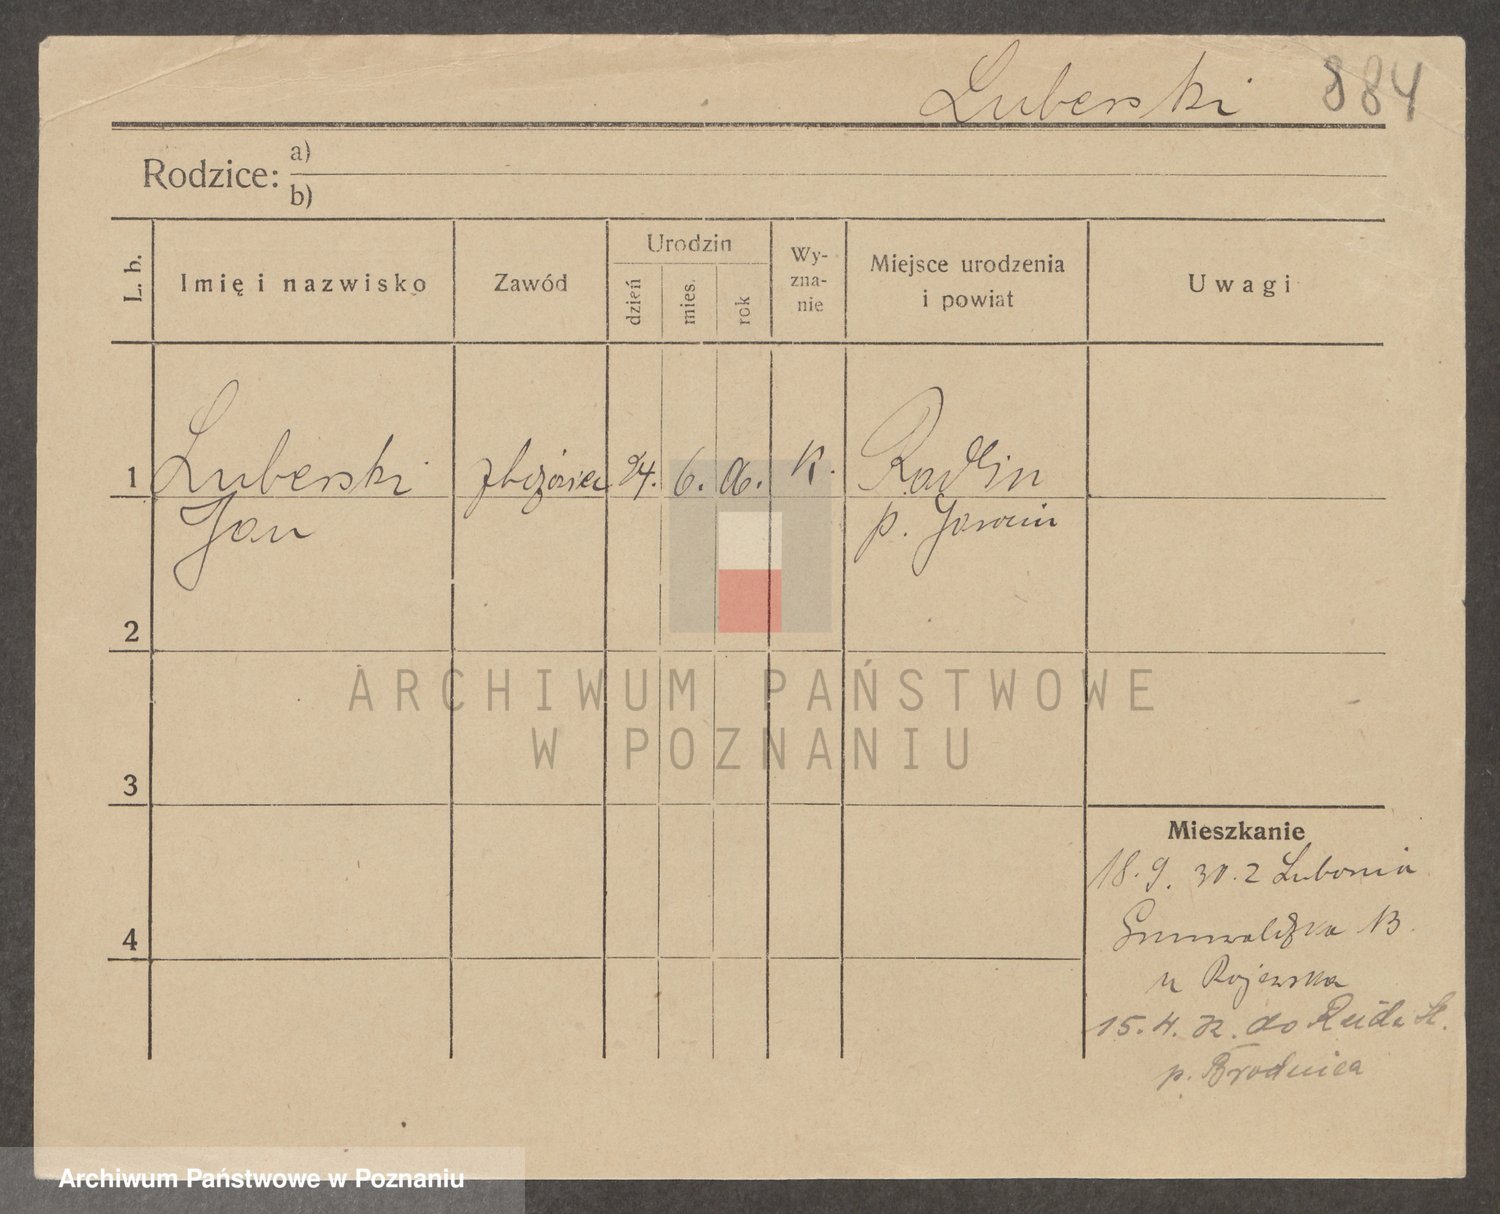 Luberski 884
Rodzice: a)
b)
L. b.
Imię i nazwisko
Zawód
Urodzin
dzień
mies.
rok
Wy-
zna-
nie
Miejsce urodzenia
i powiat
Uwagi
1 Luberski 24. 6. K. Radlin
Jan p. Jarocin
2
3
4
Mieszkanie
18. 9. 30. z Lubonia
Grunwaldzka 13
u Rojewska
15. 4. 32. do Ruda
p. Brodnica
ARCHIWUM PAŃSTWOWE
W POZNANIU
Archiwum Państwowe w Poznaniu